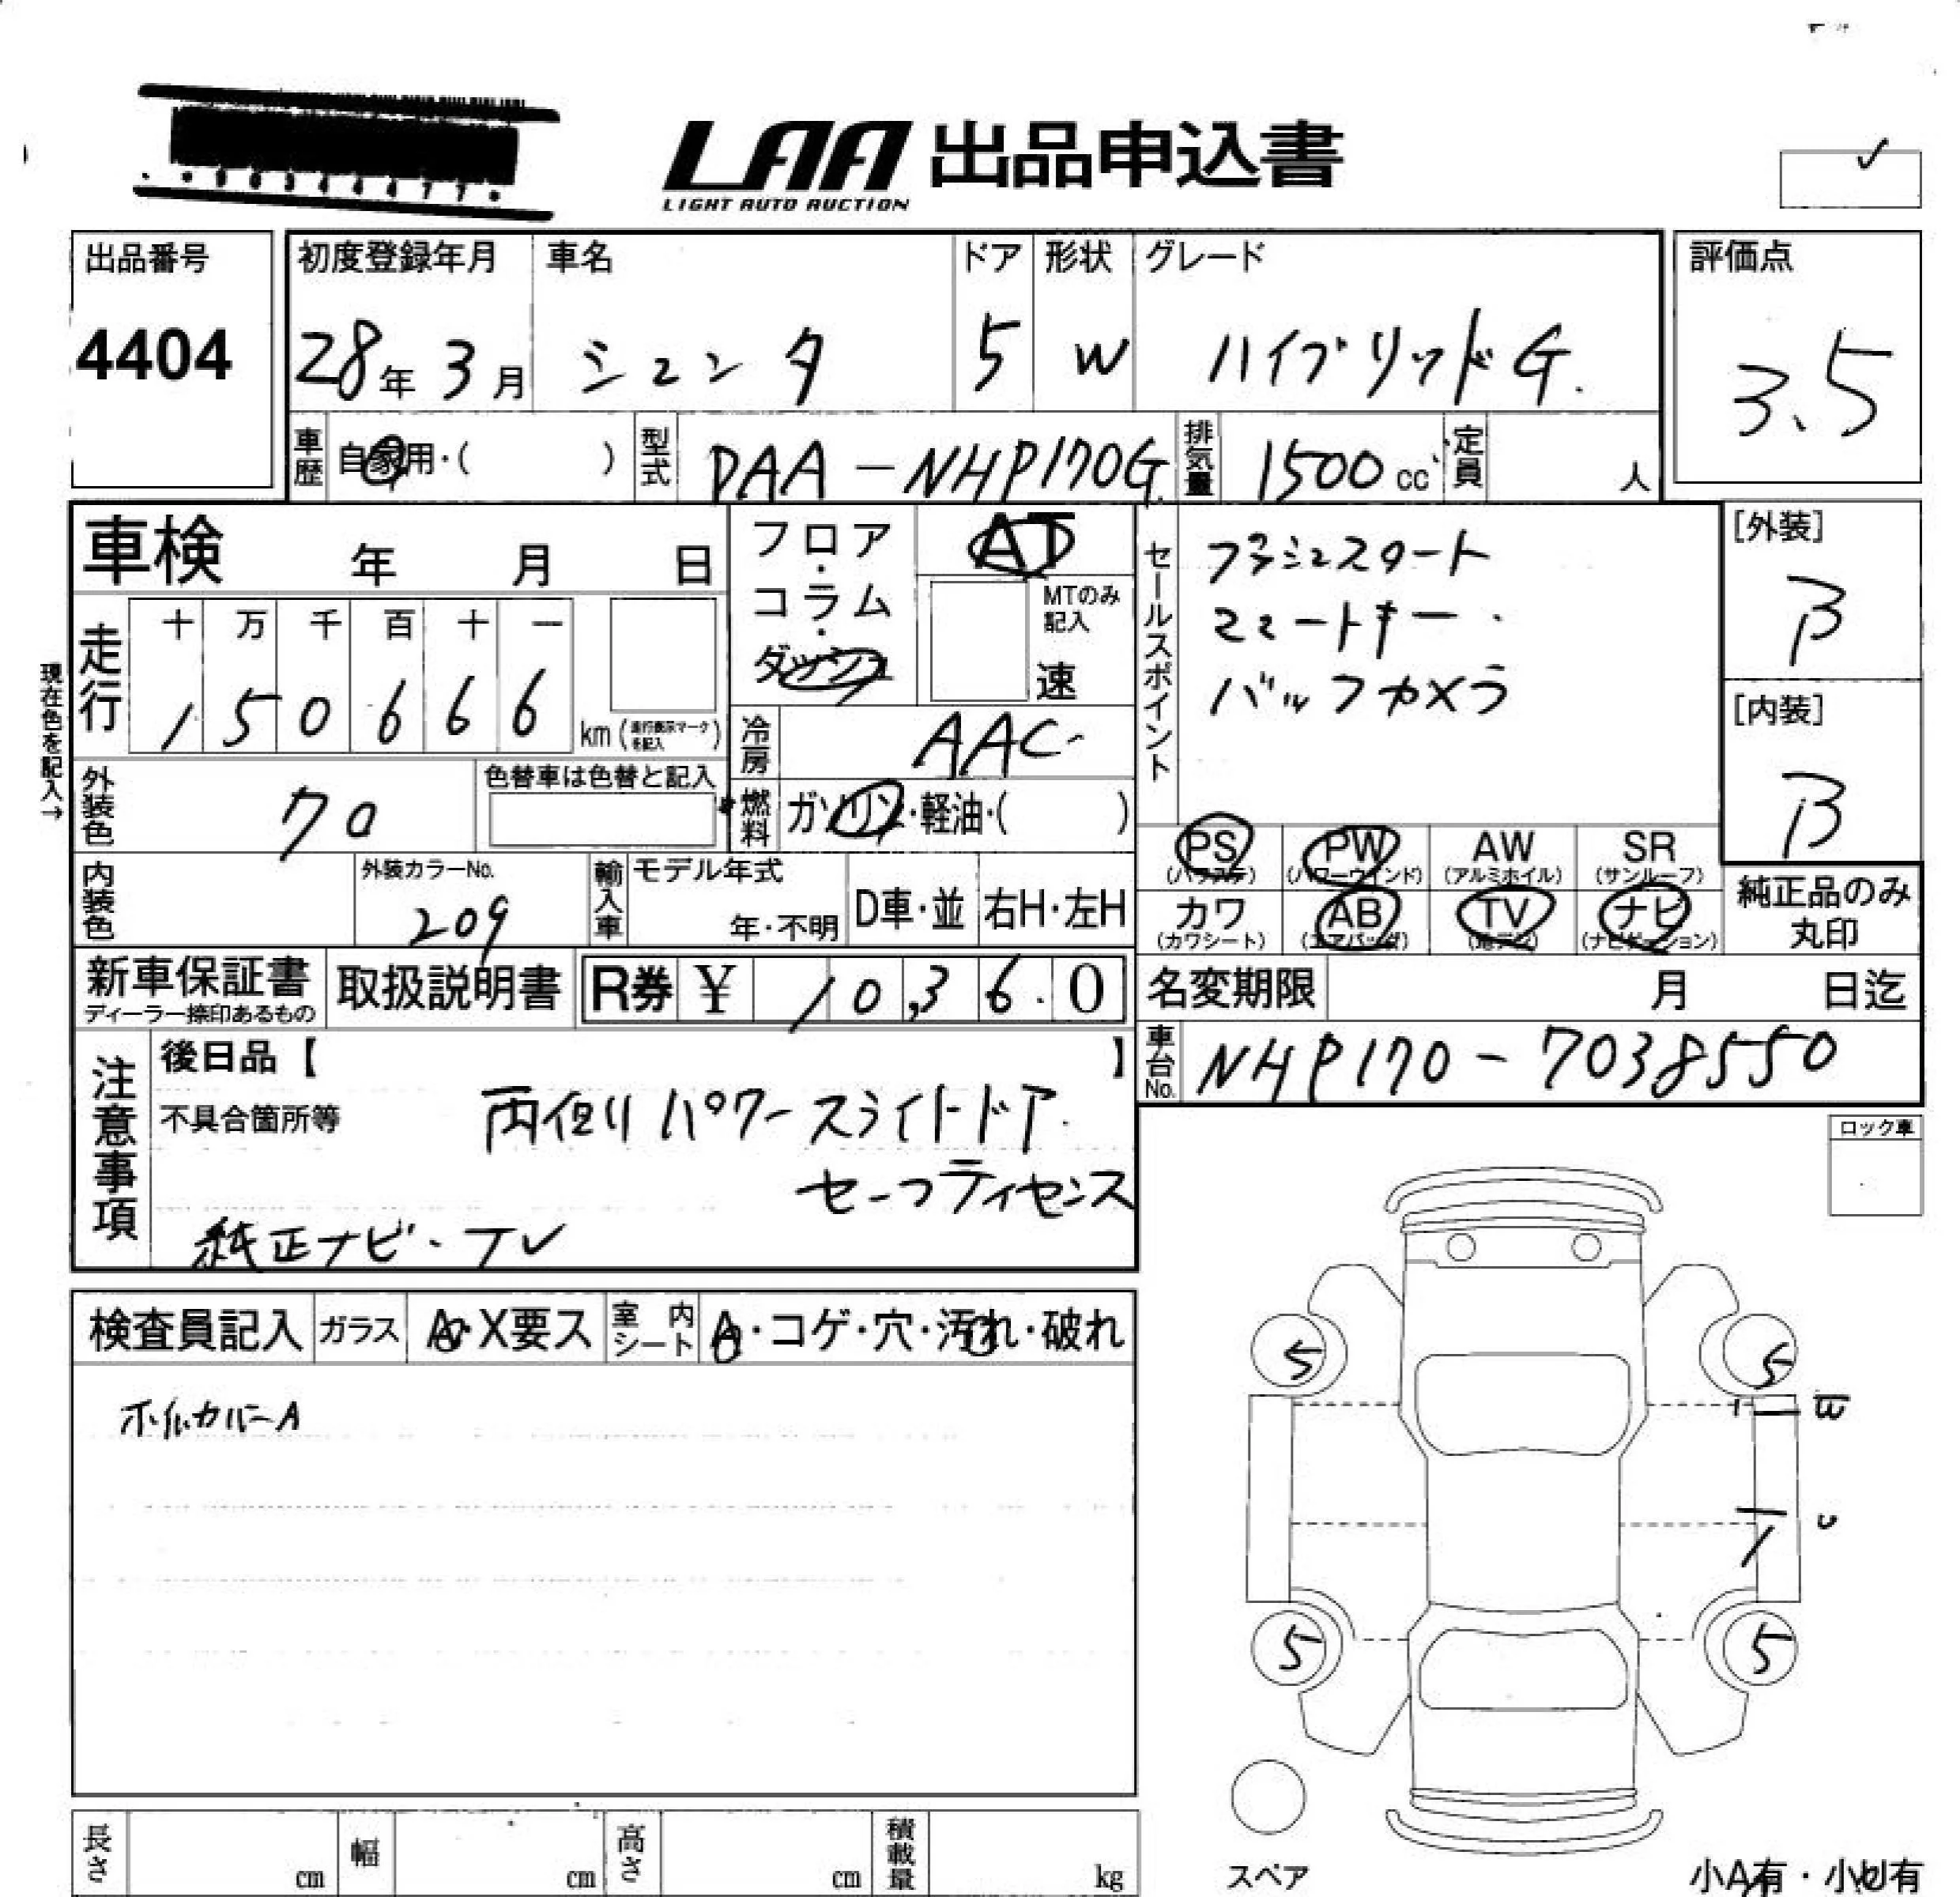 LAA 出品申込書
LIGHT AUTO AUCTION
出品番号
4404
初度登録年月
28年3月
車名
シエンタ
ドア
5
形状
W
グレード
ハイブリッドG.
評価点
3.5
車歴
自家用・( )
型式
DAA-NHP170G
排気量
1500cc
定員
人
車検 年 月 日
現在色を記入→
走行
十 万 千 百 十 一
1 5 0 6 6 6
km(走行表示マークを記入)
外装色
クロ
色替車は色替と記入
内装色
外装カラーNo.
209
輸入車
モデル年式
年・不明
D車・並
右H・左H
フロア・コラム・ダッシュ
AT
MTのみ記入
速
冷房
AAC
燃料
ガソリン・軽油・( )
セールスポイント
プッシュスタート
スマートキー
バックカメラ
[外装]
B
[内装]
B
PS (パワステ)
PW (パワーウインド)
AW (アルミホイル)
SR (サンルーフ)
カワ (カワシート)
AB (エアバッグ)
TV (地デジ)
ナビ (ナビゲーション)
純正品のみ丸印
新車保証書
ディーラー捺印あるもの
取扱説明書
R券 ¥ 10,360
名変期限 月 日迄
車台No.
NHP170-7038550
注意事項
後日品【 】
不具合箇所等
両側パワースライドドア
セーフティセンス
純正ナビ・TV
ロック車
検査員記入
ガラス
A・X要ス
室内シート
A・コゲ・穴・汚れ・破れ
ホイルカバーA
5 5
W
U
5 5
スペア
小A有・小U有
長さ cm
幅 cm
高さ cm
積載量 kg